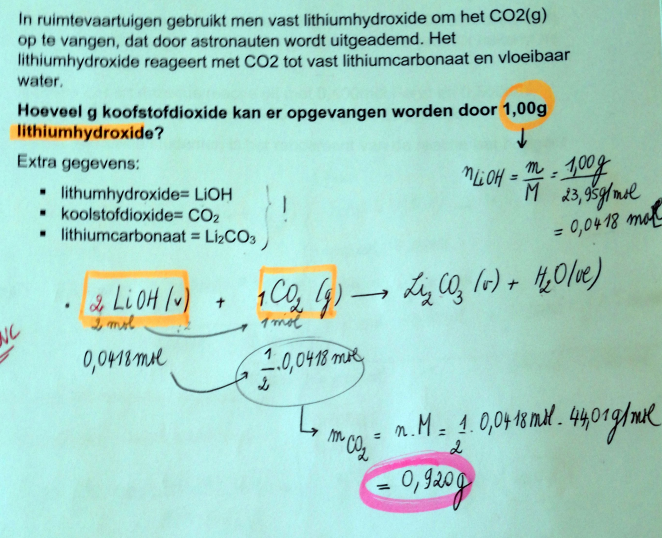 In ruimtevaartuigen gebruikt men vast lithiumhydroxide om het CO2(g)
op te vangen, dat door astronauten wordt uitgeademd. Het
lithiumhydroxide reageert met CO2 tot vast lithiumcarbonaat en vloeibaar
water.
Hoeveel g koofstofdioxide kan er opgevangen worden door 1,00g
lithiumhydroxide?
Extra gegevens:
▪ lithumhydroxide= LiOH
▪ koolstofdioxide= CO₂
▪ lithiumcarbonaat = Li₂CO₃
!
nLiOH = m/M = 1,00g/23,95g/mol
= 0,0418 mol
. 2 LiOH (v) + 1 CO₂ (g) → Li₂CO₃ (v) + H₂O (vl)
2 mol :2 1 mol
0,0418 mol 1/2 . 0,0418 mol
mCO₂ = n . M = 1/2 . 0,0418 mol . 44,01 g/mol
= 0,920g